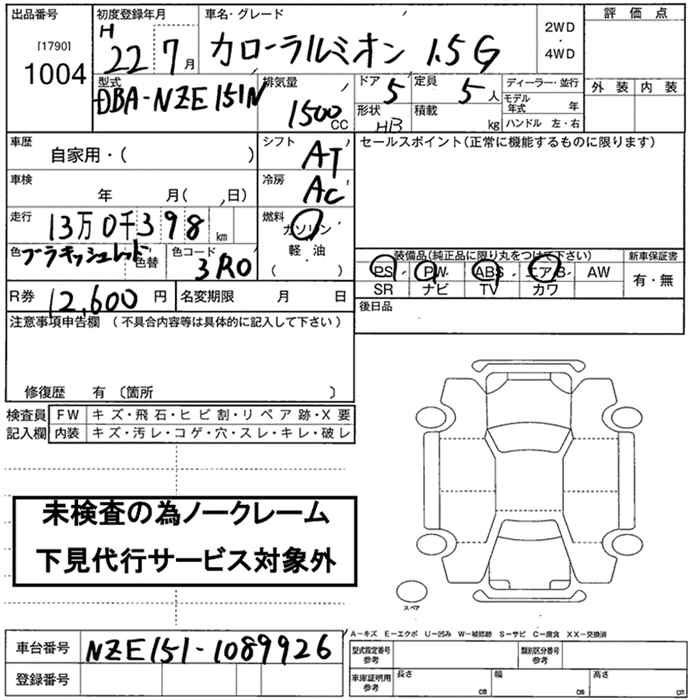 出品番号 初度登録年月 車名・グレード 評価点
[1790] H 2WD
1004 22 7月 カローラルミオン 1.5G ・
4WD
型式 排気量 ドア 定員 ディーラー・並行 外装 内装
DBA-NZE151N 1500cc 5 5人 モデル年式 年
形状 積載 ハンドル 左・右
HB kg
車歴 シフト セールスポイント(正常に機能するものに限ります)
自家用・( ) AT
車検 冷房
年 月( 、日) AC
走行 燃料
13万0千398km ガソリン
色 色替 色コード 軽油 装備品(純正品に限り丸をつけて下さい) 新車保証書
ブラキッシュレッド 3R0 ( ) PS PW ABS エアB AW 有・無
SR ナビ TV カワ
R券 12,600円 名変期限 月 日 後日品
注意事項申告欄(不具合内容等は具体的に記入して下さい)
修復歴 有 〔箇所 〕
検査員 FW キズ・飛石・ヒビ割・リペア跡・X要
記入欄 内装 キズ・汚レ・コゲ・穴・スレ・キレ・破レ
未検査の為ノークレーム
下見代行サービス対象外
スペア
A-キズ E-エクボ U-凹み W-補修跡 S-サビ C-腐食 XX-交換済
車台番号 NZE151-1089926 型式指定番号 参考 類別区分番号 参考
登録番号 車庫証明用 参考 長さ cm 幅 cm 高さ cm